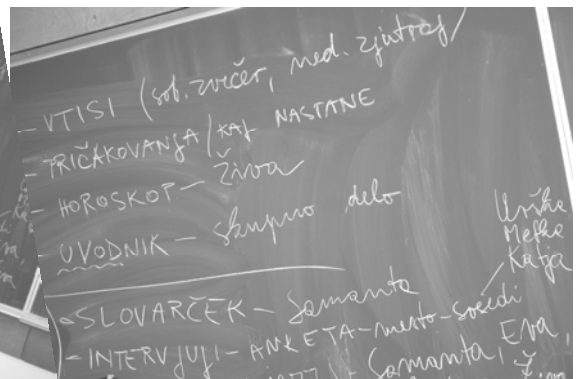 - VTISI (sob. zvečer, ned. zjutraj)
- PRIČAKOVANJA / KAJ NASTANE
- HOROSKOP - Živa
- UVODNIK - skupno delo
Urška
Metka
Katja
- SLOVARČEK - Samanta
- INTERVJUJI - ANKETA - mesto - sosedi
Samanta, Eva,